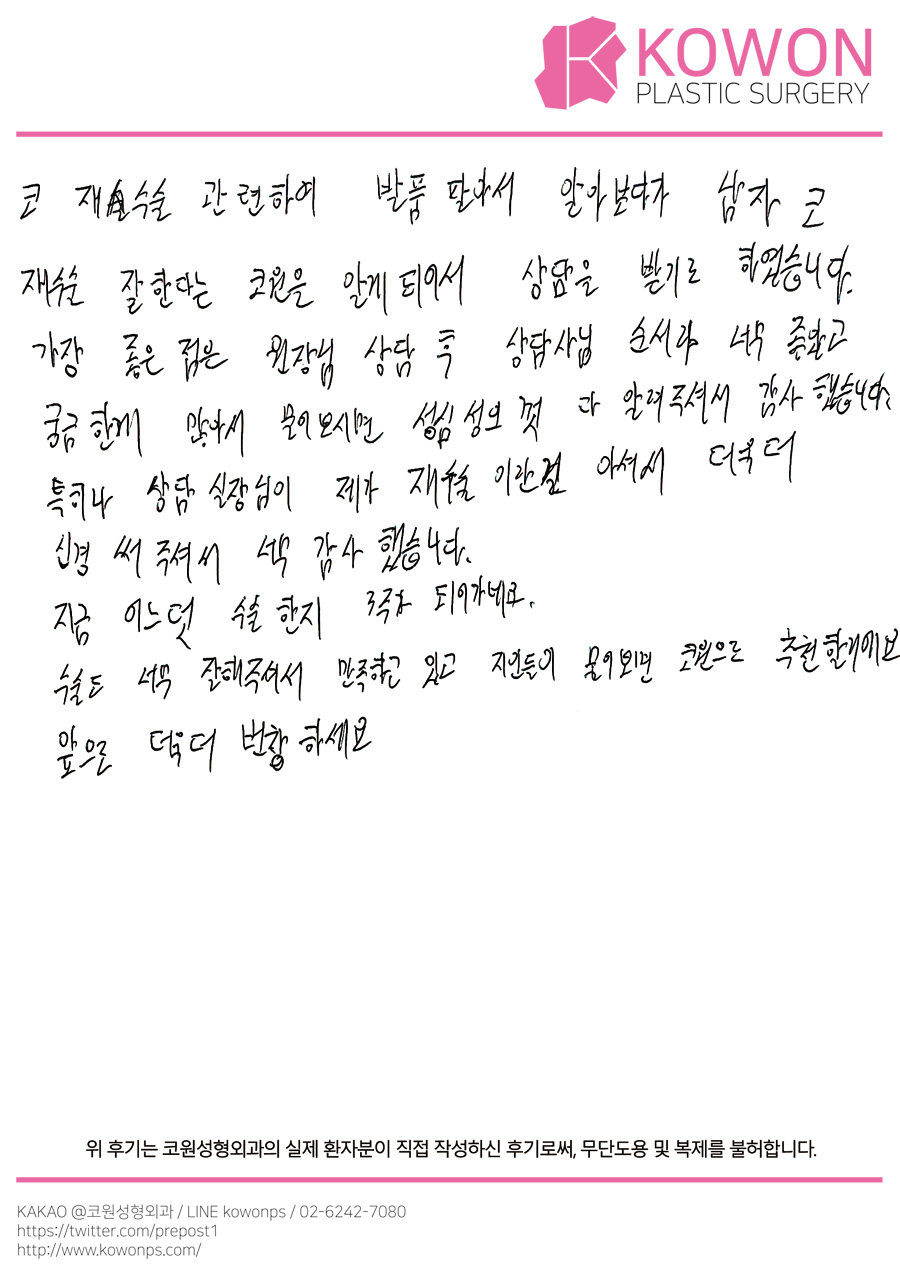 KOWON
PLASTIC SURGERY
코 재수술 관련하여 발품 팔아서 알아보다가 남자 코
재수술 잘한다는 코원을 알게 되어서 상담을 받기로 하였습니다.
가장 좋은 점은 원장님 상담 후 상담사님 순서라 너무 좋았고
궁금한게 많아서 물어보시면 성심성의 껏 다 알려주셔서 감사했습니다.
특히나 상담 실장님이 제가 재수술 이란걸 아셔서 더욱더
신경 써 주셔서 너무 감사했습니다.
지금 어느덧 수술 한지 3주차 되어가네요.
수술도 너무 잘해주셔서 만족하고 있고 지인들이 물어보면 코원으로 추천할거에요
앞으로 더욱더 번창하세요
위 후기는 코원성형외과의 실제 환자분이 직접 작성하신 후기로써, 무단도용 및 복제를 불허합니다.
KAKAO @코원성형외과 / LINE kowonps / 02-6242-7080
https://twitter.com/prepost1
http://www.kowonps.com/